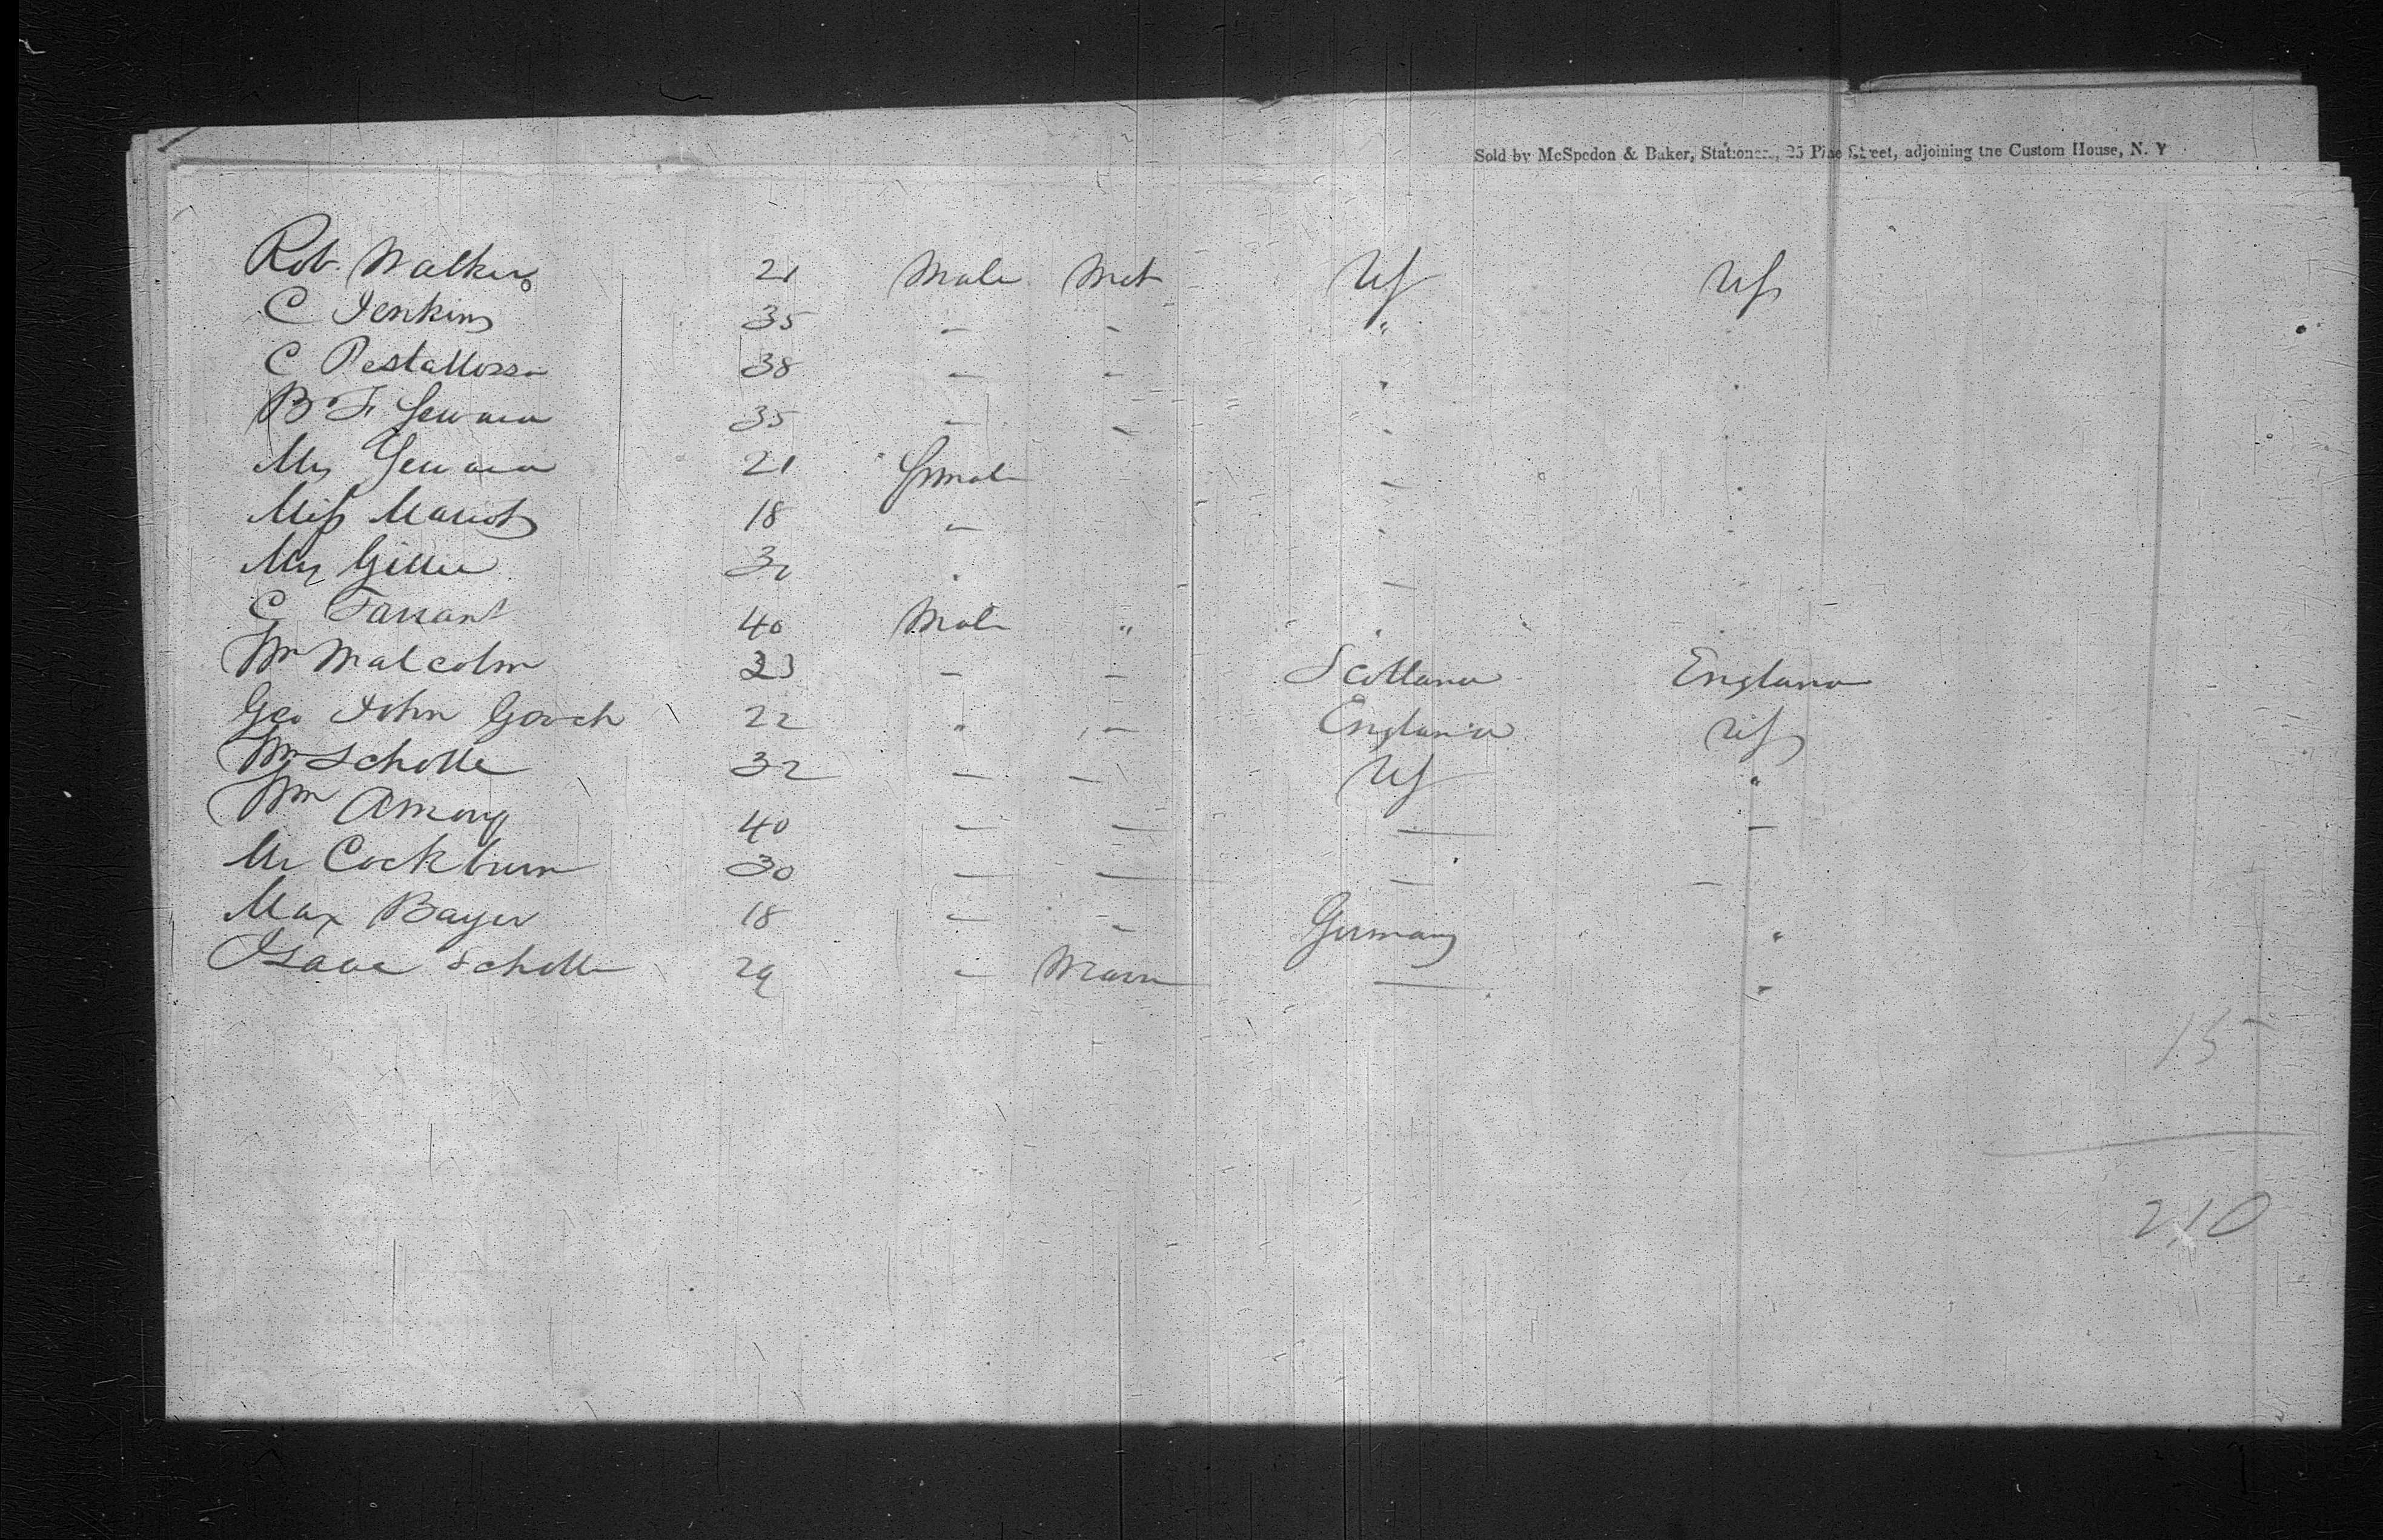 Sold by McSpedon & Baker, Stationers, 25 Pine Street, adjoining the Custom House, N. Y
Rob. Walker 21 Male Mct US US
C Jenkins 35 - - "
C Pestallossa 38 - -
B. F. Seward 35 - - -
Mrs Seward 21 Female -
Miss 18 -
Mrs Gillie
C Tarrant 40 Male "
Wm Malcolm 23 - - Scotland England
Geo John Gooch 22 " - England US
Wm Scholle 32 - - US "
Wm 40 - - - -
Mr Cockburn 30 - - - -
Max Bayer 18 - - Germany "
Isaac Scholle 29 - - "
15
210